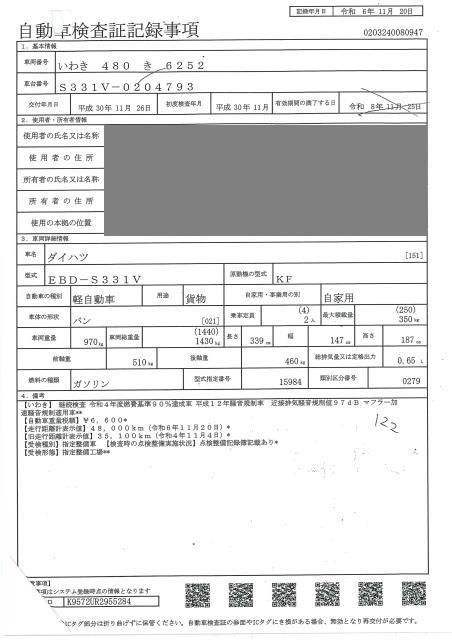 記録年月日 令和 6年11月 20日
自動車検査証記録事項
0203240080947
1. 基本情報
車両番号 いわき 480 き 6252
車台番号 S331V-0204793
交付年月日 平成 30年 11月 26日 初度検査年月 平成 30年 11月 有効期間の満了する日 令和 8年 11月 25日
2. 使用者・所有者情報
使用者の氏名又は名称
使用者の住所
所有者の氏名又は名称
所有者の住所
使用の本拠の位置
3. 車両詳細情報
車名 ダイハツ [151]
型式 EBD-S331V 原動機の型式 KF
自動車の種別 軽自動車 用途 貨物 自家用・事業用の別 自家用
車体の形状 バン [021] 乗車定員 (4) 2人 最大積載量 (250) 350kg
車両重量 970kg 車両総重量 (1440) 1430kg 長さ 339cm 幅 147cm 高さ 187cm
前軸重 510kg 後軸重 460kg 総排気量又は定格出力 0.65 L
燃料の種類 ガソリン 型式指定番号 15984 類別区分番号 0279
4. 備考
【いわき】 継続検査 令和4年度燃費基準90%達成車 平成12年騒音規制車 近接排気騒音規制値97dB マフラー加
速騒音規制適用車**
【自動車重量税額】¥6,600*
【走行距離計表示値】48,000km(令和6年11月20日)*
【旧走行距離計表示値】35,100km(令和4年11月4日)*
【受検種別】指定整備車 【検査時の点検整備実施状況】点検整備記録簿記載あり*
【受検形態】指定整備工場**
122
意事項】
項はシステム登録時点の情報となります
K9572UR2955284
ICタグ部分は折り曲げずに保管ください。自動車検査証の券面やICタグにき損がある場合、無効となり再交付が必要です。